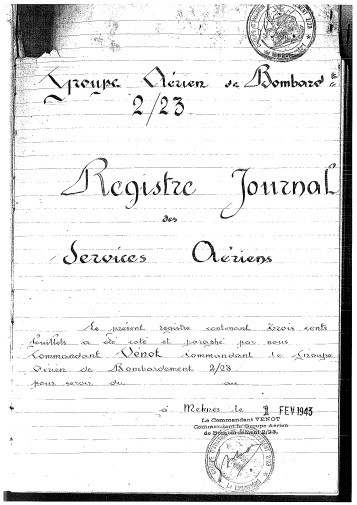 Groupe Aérien de Bombard nt
2/23
Registre Journal
des
Services Aériens
Le présent registre contenant trois cents
feuillets a été coté et paraphé par nous
Commandant Venot Commandant le Groupe
Aérien de Bombardement 2/23
pour servir du au
à Meknès le 1 FEV 1943
Le Commandant VENOT
Commandant le Groupe Aérien
de Bombardement 2/23.